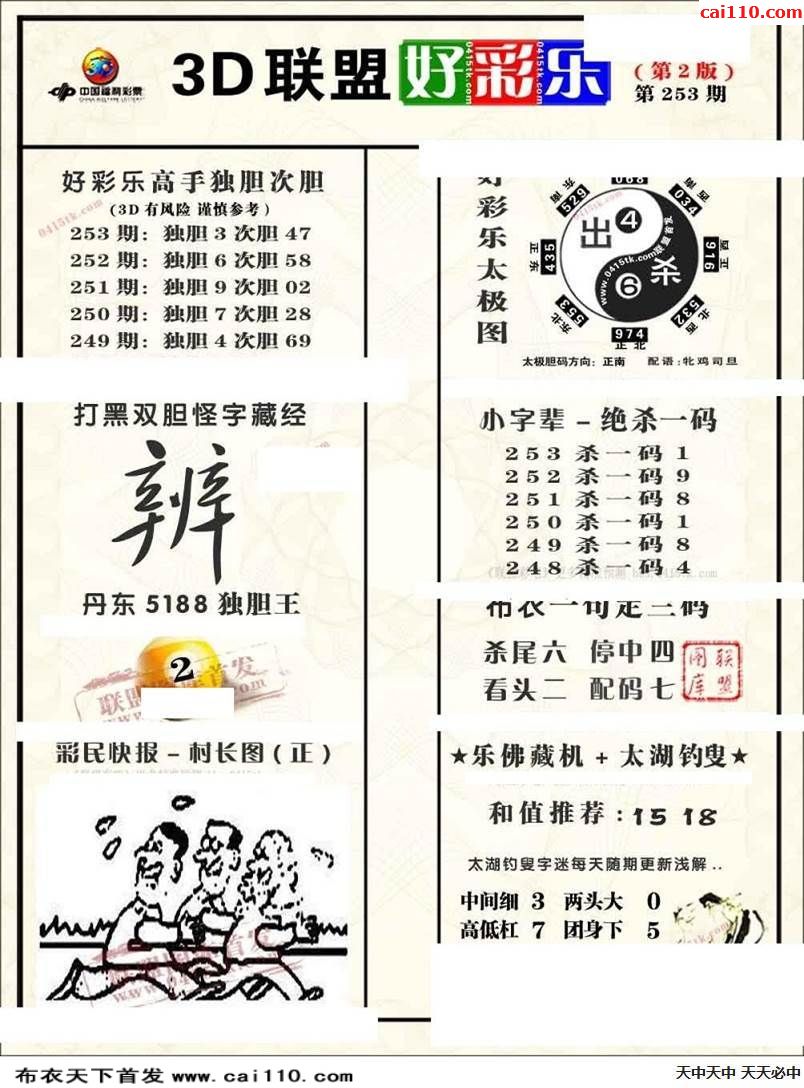 cai110.com
中国福利彩票
CHINA WELFARE LOTTERY
3D联盟好彩乐
0415tk.com
(第2版)
第253期
好彩乐高手独胆次胆
(3D有风险 谨慎参考)
253期: 独胆3次胆47
252期: 独胆6次胆58
251期: 独胆9次胆02
250期: 独胆7次胆28
249期: 独胆4次胆69
好彩乐太极图
出 4
杀 6
www.0415tk.com联盟首发
068
034
西南
916
正西
532
西北
974
正北
553
东北
435
正东
529
东南
太极胆码方向: 正南 配语: 牝鸡司旦
打黑双胆怪字藏经
辨
丹东5188独胆王
2
小字辈-绝杀一码
253杀一码1
252杀一码9
251杀一码8
250杀一码1
249杀一码8
248杀一码4
布衣一句定三码
杀尾六 停中四
看头二 配码七
联盟图库
彩民快报-村长图(正)
★乐佛藏机+太湖钓叟★
和值推荐:15 18
太湖钓叟字迷每天随期更新浅解..
中间细 3 两头大 0
高低杠 7 团身下 5
布衣天下首发 www.cai110.com
天中天中 天天必中